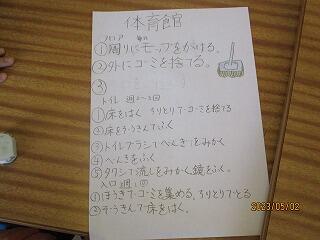 体育館
フロア 毎日
①周りにモップをかける。
②外にゴミを捨てる。
③
トイレ 週2~3回
①床をはく ちりとりでゴミを捨てる
②床をぞうきんでふく
③トイレブラシでべんきをみがく
④べんきをふく
⑤タワシで流しをみがく、鏡をふく。
入口 週1回
①ほうきでゴミを集める、ちりとりでとる
②ぞうきんで床をはく。
2023/05/02